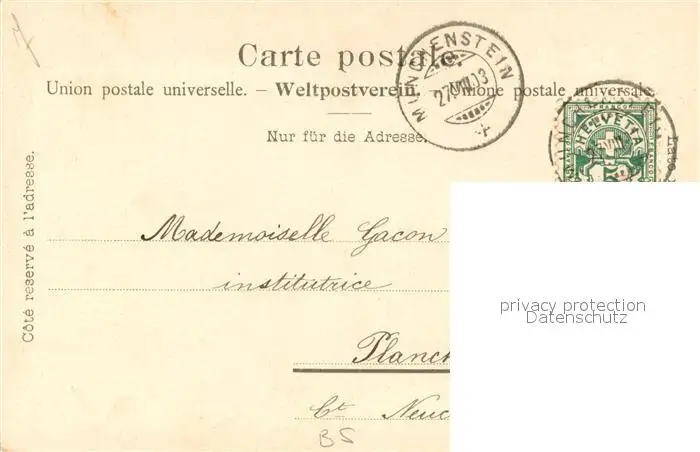 Carte postale.
Union postale universelle. – Weltpostverein. – Unione postale universale.
MÜNCHENSTEIN
27. VIII. 03
HELVETIA
FRANCO
Nur für die Adresse.
Côté reservé à l'adresse.
Mademoiselle Gacon
institutrice
privacy protection
Datenschutz
Planc
Ct Neuc
BS